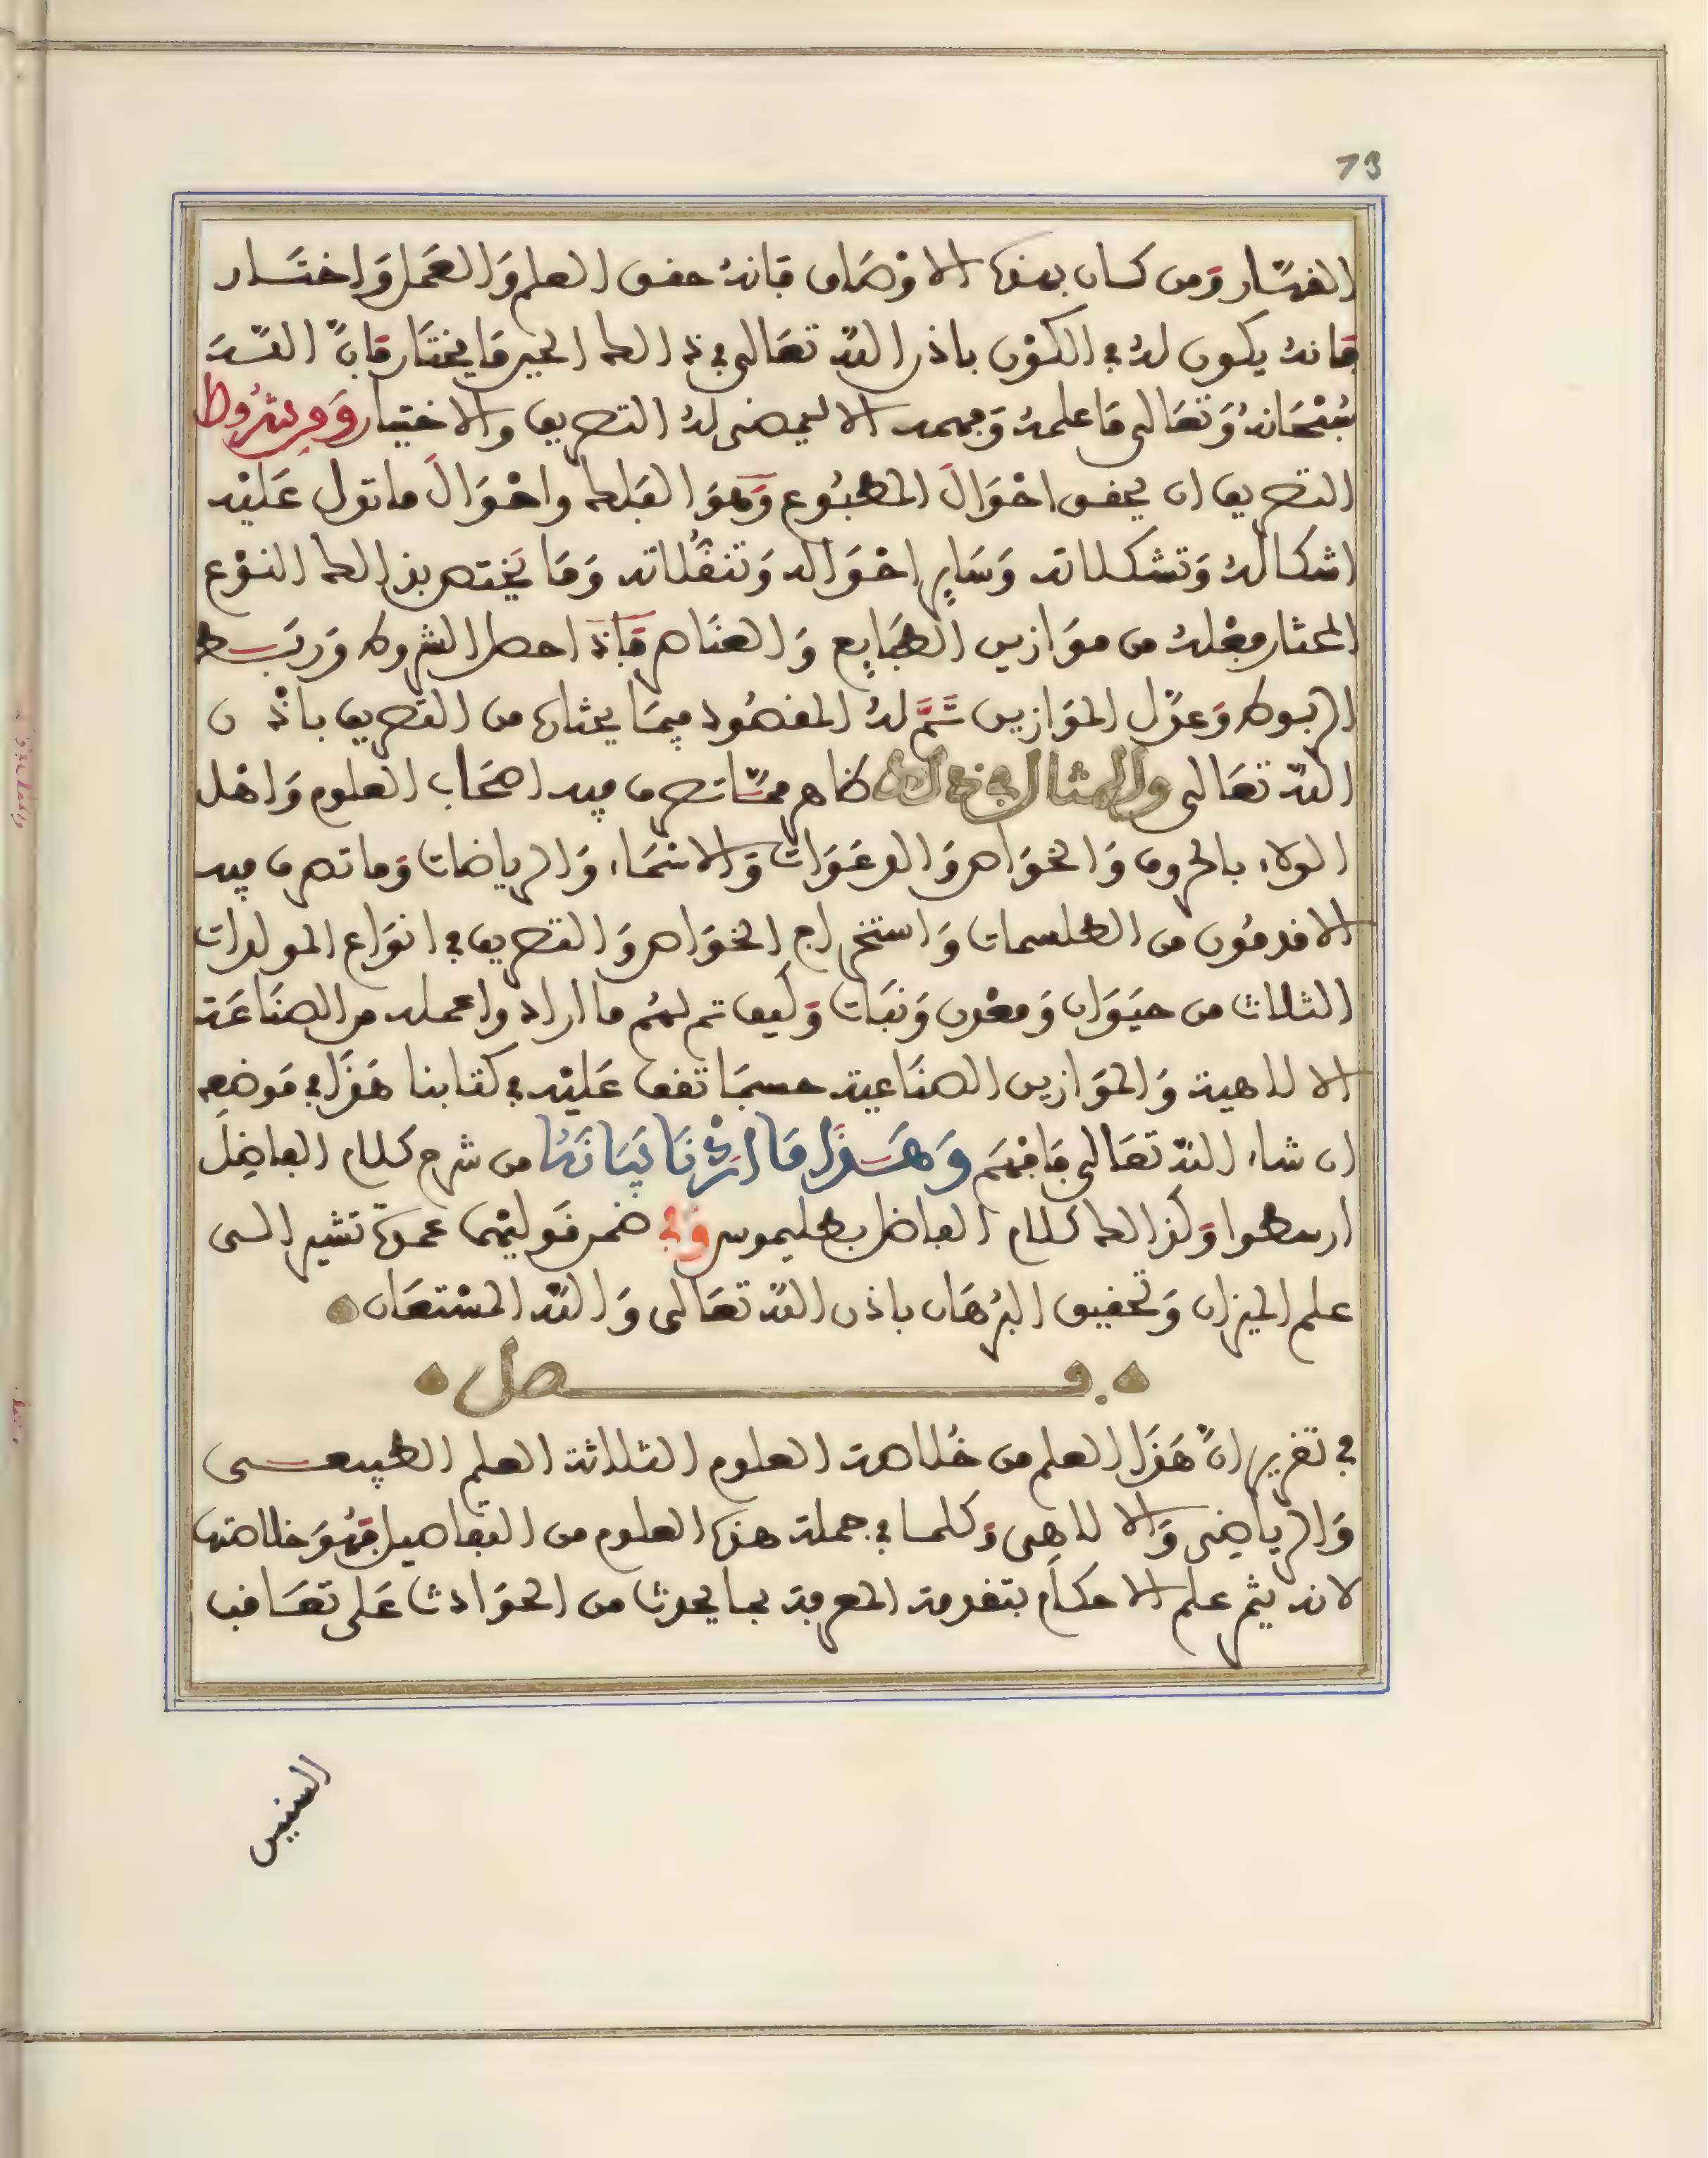 73
القهار ومن كان بهذه الاوصاف فانه حقق العلم والعمل واختار
فانه يكون له في الكون باذن الله تعالى في ذالك الحين ما يختار فان الله
سبحانه وتعالى ما علمه وفهمه الا ليمضي له التصريف والاختيار ومن شروط
التصريف ان يحقق احوال المطبوع وهو الفلك واحوال ما تول عليه
اشكاله وتشكلاته وساير احواله وتنقلاته وما يختص بذالك النوع
المختار فعله من موازين الطبايع والعناصر فاذا احصل الشروط وربط
الربوط وعدل الموازين تم له المقصود فيما يختاره من التصريف باذن
الله تعالى والمثال في ذالك ظاهر مما تصرف فيه اصحاب العلوم واهل
الولاء بالحروف والخواص والدعوات والاسماء والرياضات وما تصرف فيه
الاقدمون من الطلسمات واستخراج الخواص والتصريف في انواع المولدات
الثلاث من حيوان ومعدن ونبات وكيف تم لهم ما ارادوا عمله من الصناعة
الالاهية والموازين الصناعية حسبما تقف عليه في كتابنا هذا في موضعه
ان شاء الله تعالى فافهم وهذا ما اردنا بيانه من شرح كلام الفاضل
ارسطوا وكذالك كلام الفاضل بطليموس وفي ضمن قوليهما عمدة تشير الى
علم الميزان وتحقيق البرهان باذن الله تعالى والله المستعان
فصل
في تقرير ان هذا العلم من خلاصة العلوم الثلاثة العلم الطبيعي
والرياضي والالاهي وكلما في جملة هذه العلوم من التفاصيل فهو خلاصتها
لانه يثم علم الاحكام بتقدمة المعرفة بما يحدث من الحوادث على تعاقب
السنين